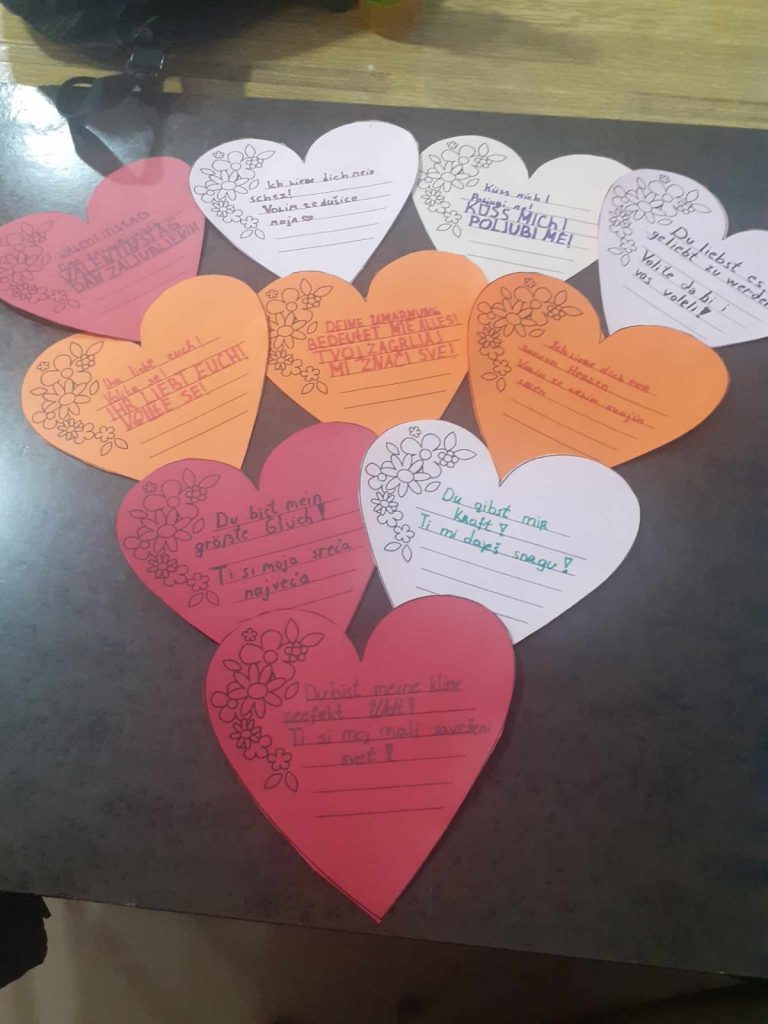 VALENTINSTAG
DAN ZALJUBLJENIH
Ich liebe dich mein
schatz!
Volim te dušico
moja
Küss mich!
Poljubi me!
KÜSS MICH!
POLJUBI ME!
Du liebst es
geliebt zu werden
Volite da bi i
vas voleli
Ihr liebt euch!
Volite se!
IHR LIEBT EUCH!
VOLITE SE!
DEINE UMARMUNG
BEDEUTET MIR ALLES!
TVOJ ZAGRLJAJ
MI ZNAČI SVE!
Ich liebe dich
Herzen
Volim te svojim
Du bist mein
größte Glüch!
Ti si moja sreća
najveća
Du gibst mir
Kraft!
Ti mi daješ snagu!
Du bist meine kline
peefekt Welt!
Ti si moj mali savršeni
svet!